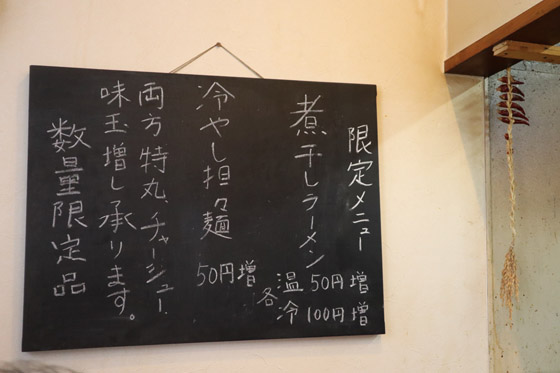 限定メニュー
煮干しラーメン
各 温 50円増
冷 100円増
冷やし担々麺
50円増
両方 特丸、チャーシュー、
味玉増し承ります。
数量限定品